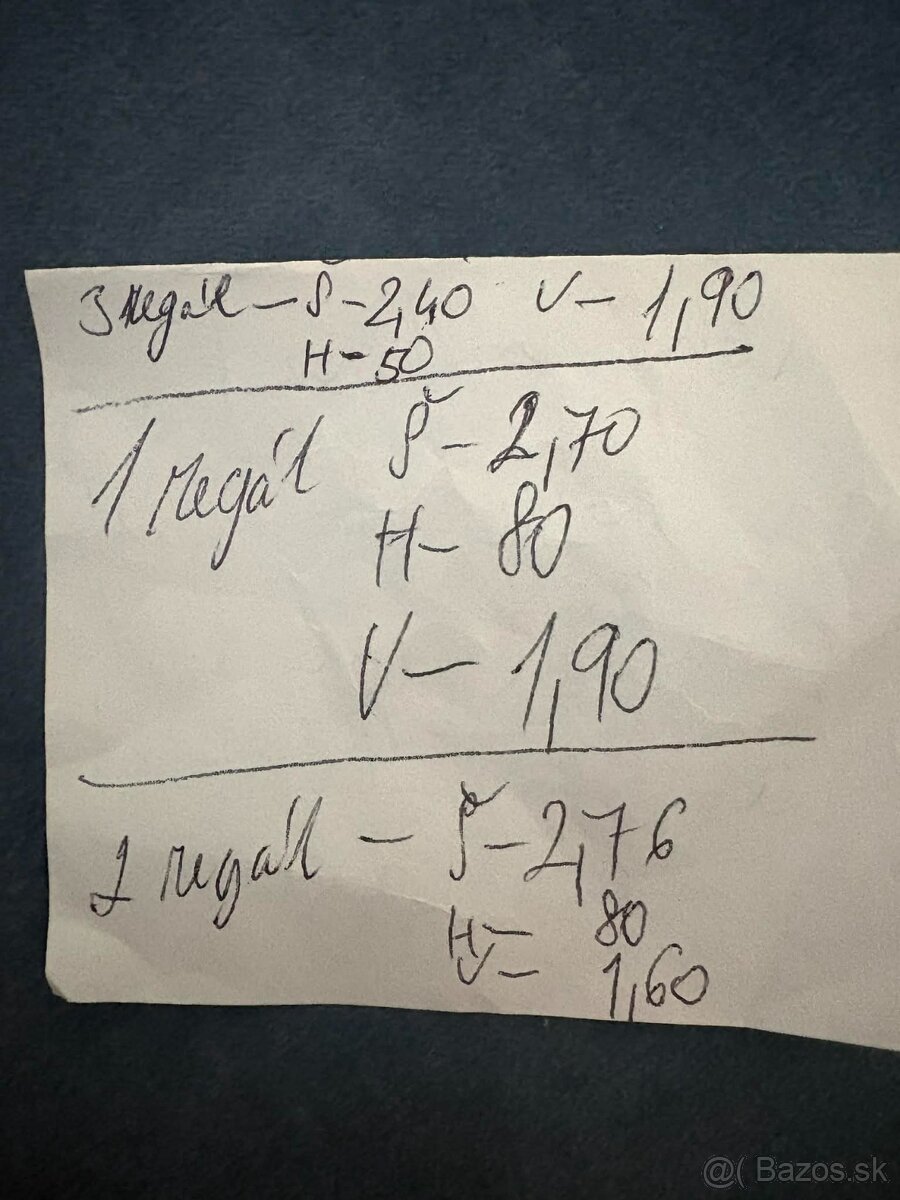 3 regál – Š – 2,40 V – 1,90
H – 50
1 regál Š – 2,70
H – 80
V – 1,90
2 regál – Š – 2,76
H – 80
V – 1,60
@( Bazos.sk